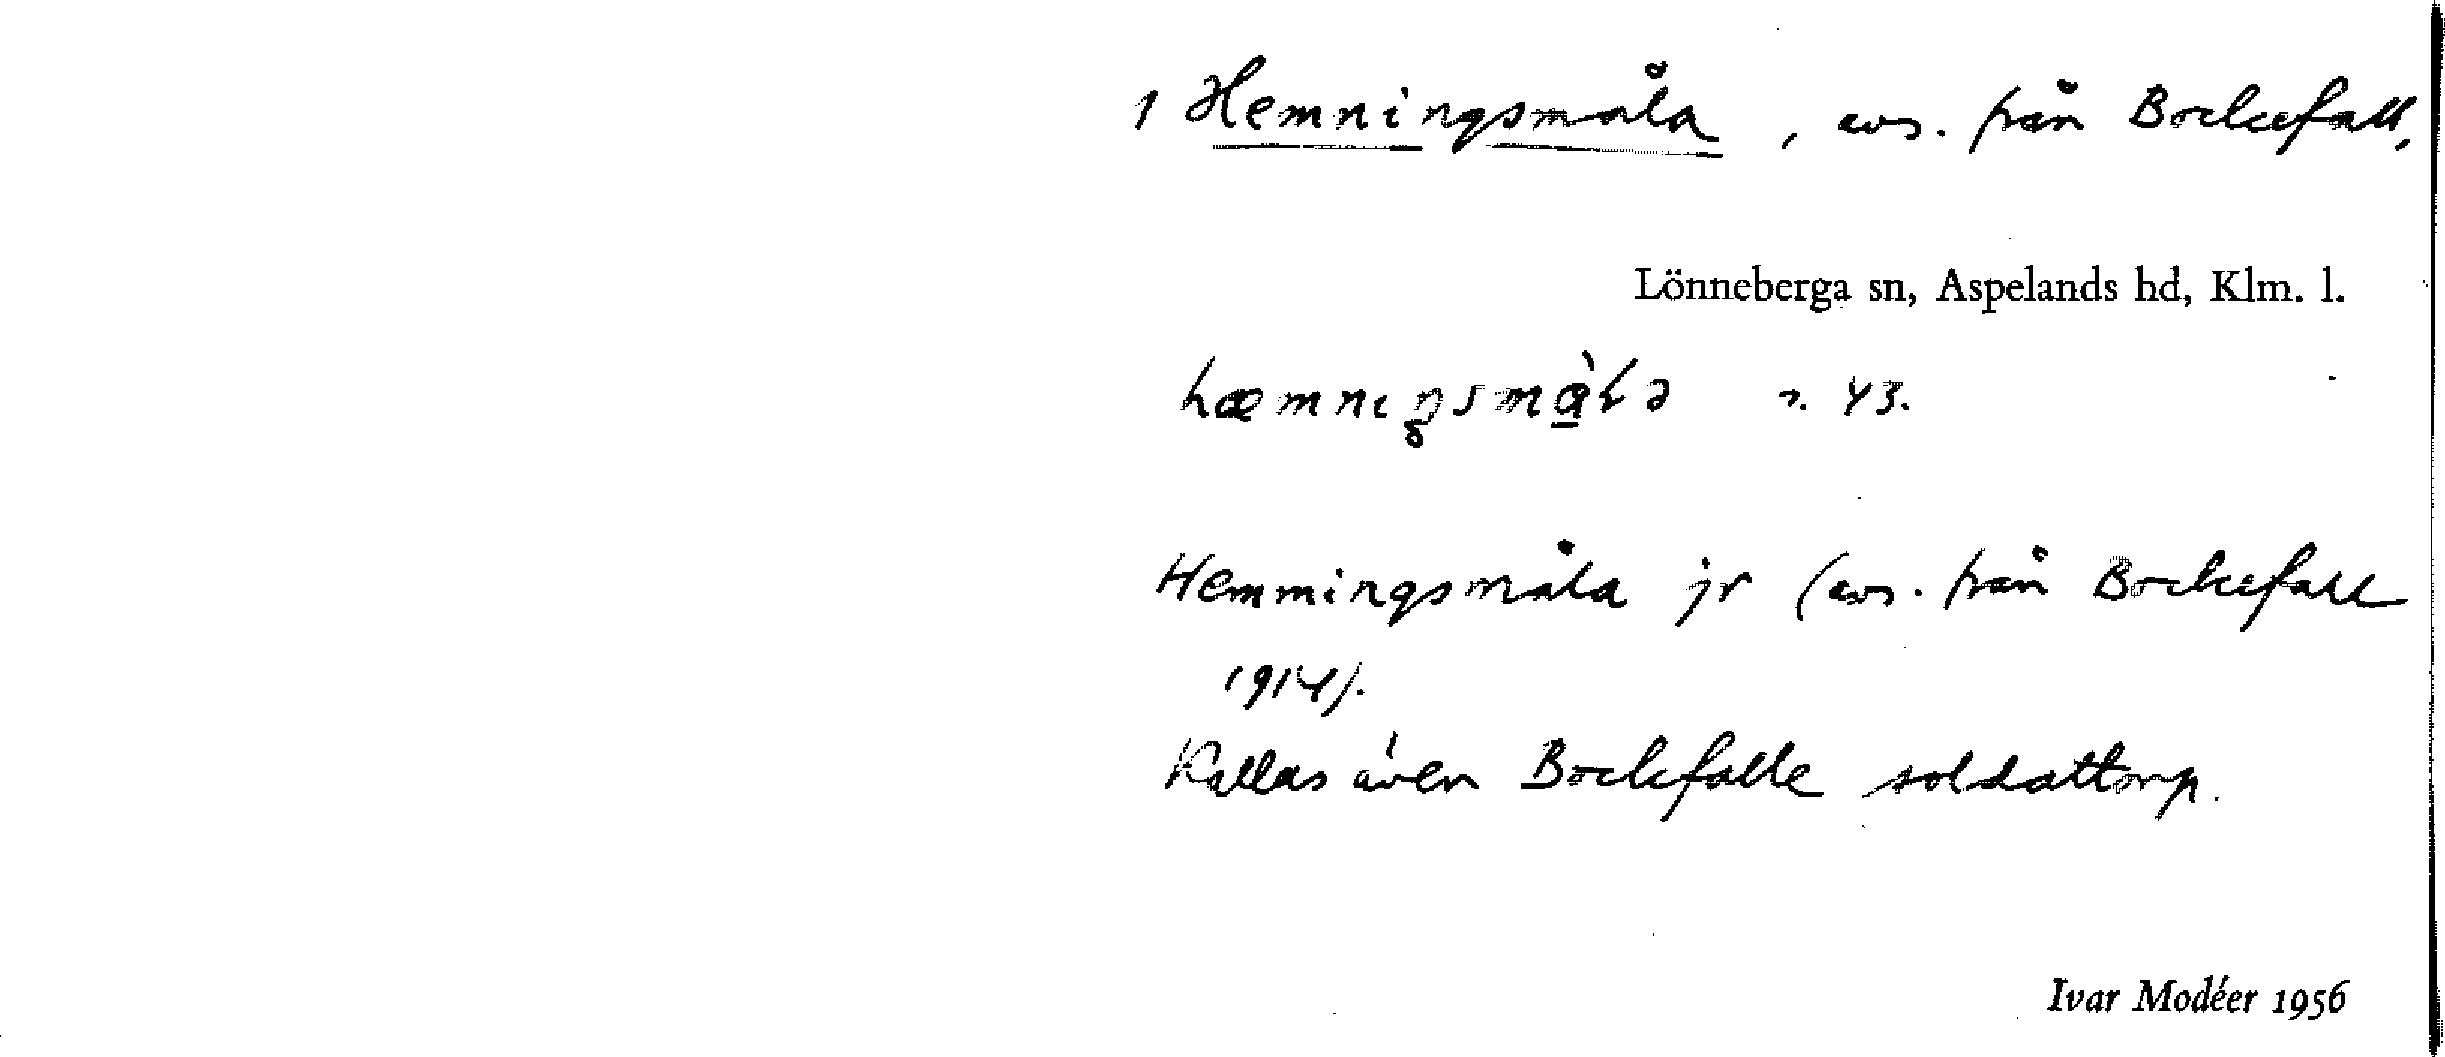 1 Hemningsmåla, avs. från Bockefall,
Lönneberga sn, Aspelands hd, Klm. l.
r. 43.
Hemmingsmåla jr (avs. från Bockefall
1914).
Kallas även Bockfalle soldattorp.
Ivar Modéer 1956